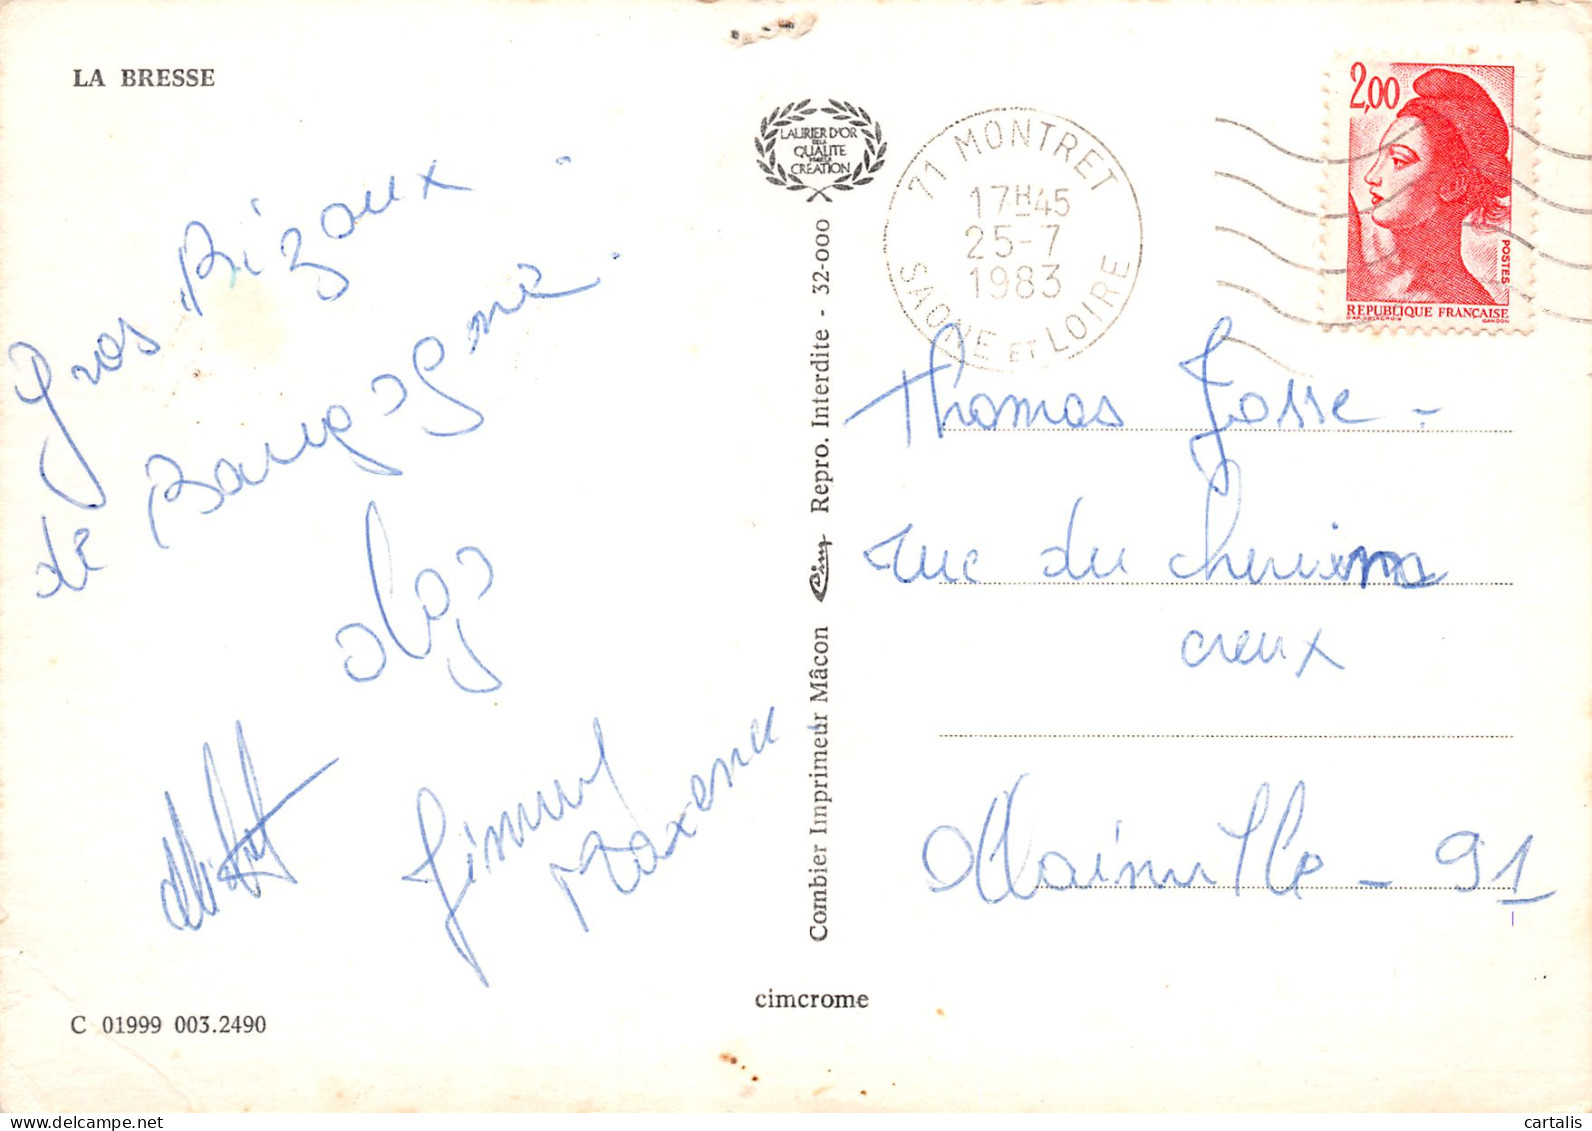 LA BRESSE
Gros Bizoux
de Bourgogne.
Olga
Maxence
C 01999 003.2490
LAURIER D'OR
DE LA
QUALITE
CREATION
Combier Imprimeur Mâcon Cim Repro. Interdite - 32-000
cimcrome
71 MONTRET
17H45
25-7
1983
SAONE ET LOIRE
2,00
POSTES
REPUBLIQUE FRANÇAISE
D'AP. DELACROIX GANDON
Thomas Josse -
rue du chemin
creux
Mainville - 91
cartalis